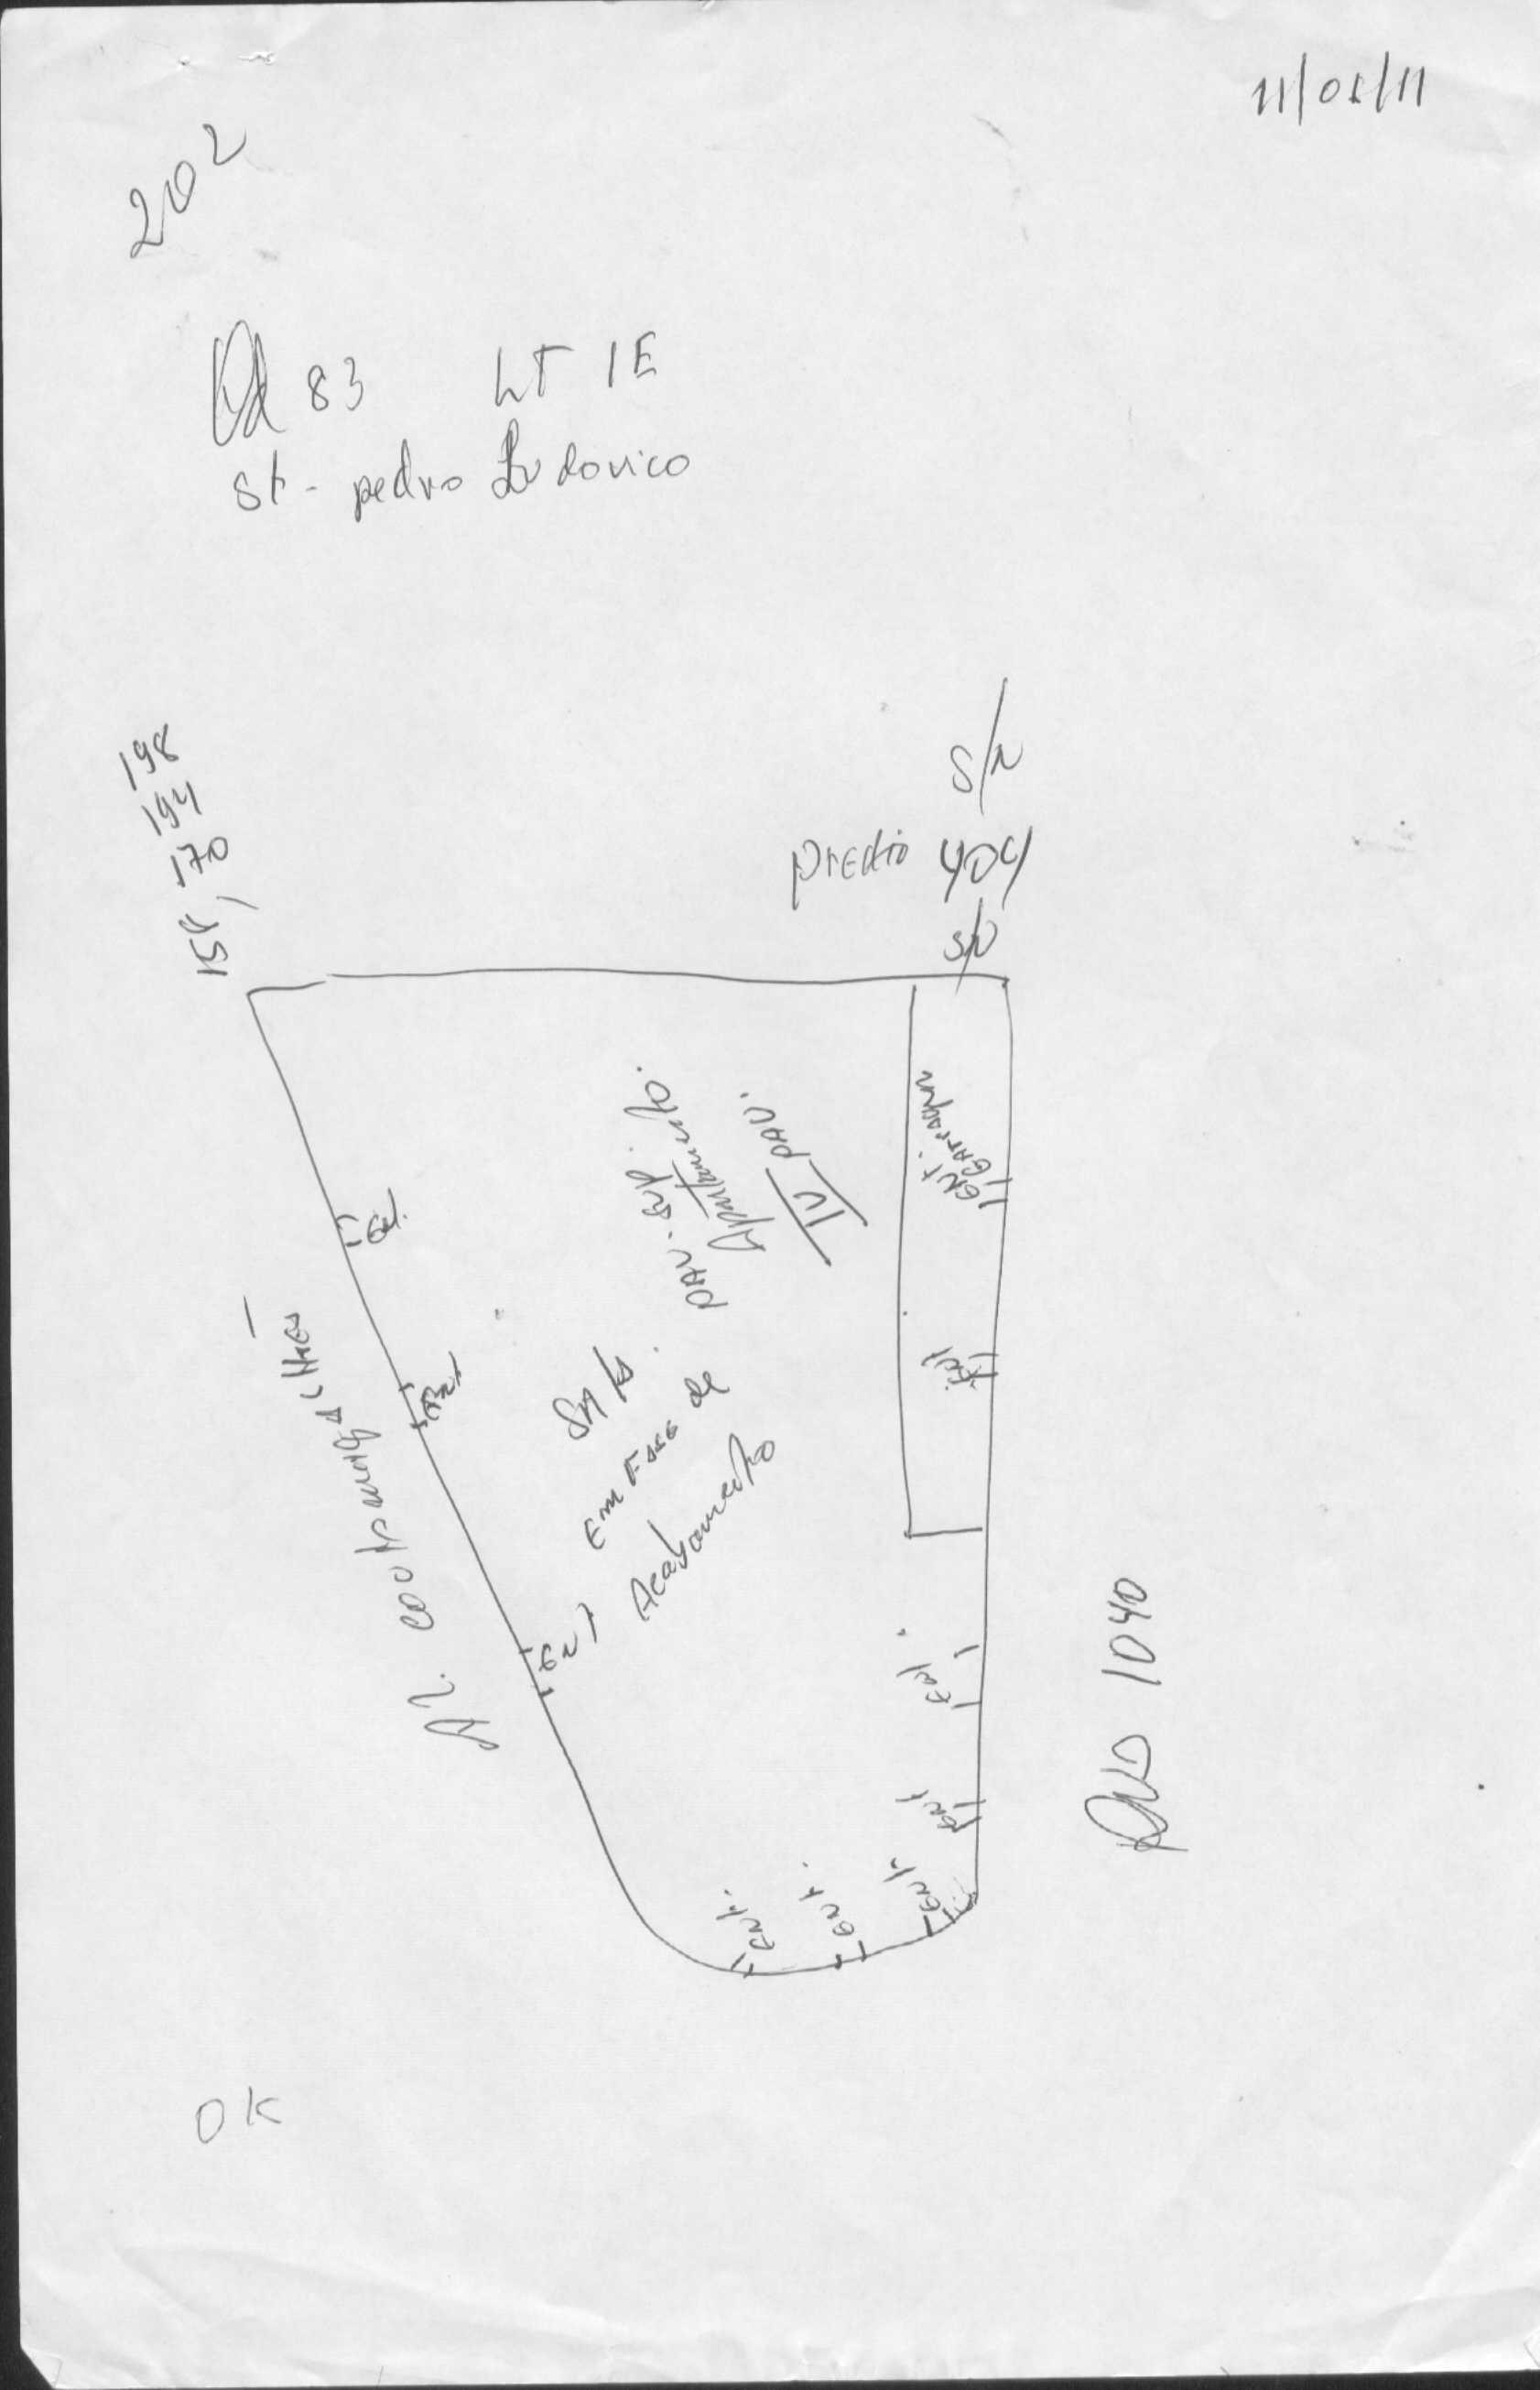 11/01/11
202
Qd 83 LT 1E
St - pedro Ludovico
198
194
170
154,
S/N
predio 404
S/N
ENT. GARAGEM
PAV. SUP.
Apartamento.
IV PAV.
Sala
Em Fase de
Acabamento
Al. couto magalhães
Ent
Ent
ENT
Ent
Ent
Ent
Ent.
Ent.
Ent
RUA 1040
OK